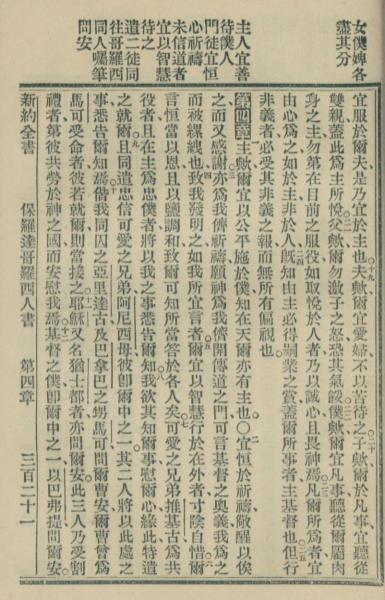 女僕婢各
盡其分
主人宜善
待僕人
門徒宜恒
心祈禱
未信道者
宜以智慧
待之
遣二徒同
往哥羅西
同人囑筆
問安
宜服於爾夫是乃宜於主也夫歟爾宜愛婦不以苦待之子歟爾於凡事宜聽從
雙親蓋此為主所悅父歟爾勿激子之怒恐其氣餒僕歟爾宜凡事聽從爾屬肉
身之主勿第在目前之服役如取悅於人者乃以誠心且畏神焉凡爾所為者宜
由心為之如於主非於人既知由主必得嗣業之賞蓋爾所事者主基督也但行
非義者必受其非義之報而無所有偏視也
第四章 主歟爾宜以公平施於僕知在天爾亦有主也○宜恒於祈禱儆醒以俟
之而又感謝亦為我儕祈禱願神為我儕開傳道之門可言基督之奧義我為之
而被縲絏也致我發明之如我所宜言者爾宜以智慧行於在外者寸陰自惜爾
言恒當以恩且以鹽調和致爾可知所當答於各人矣可愛之兄弟推基古為共
役者且在主為忠僕者將以我之事悉告爾知我欲其知爾事慰爾心緣此特遣
之就爾且同遣忠信可愛之兄弟阿尼西母彼卽爾中之一其二人將以此處之
事悉告爾知焉偕我同囚之亞里達古及巴拿巴之甥馬可問爾安爾曹曾為
馬可受命者彼若就爾則當接之耶穌又名猶士都者亦問爾安此三人乃受割
禮者第彼共勞於神之國而安慰我焉為基督之僕卽爾中之一以巴弗提問爾安
新約全書 保羅達哥羅西人書 第四章 三百二十一